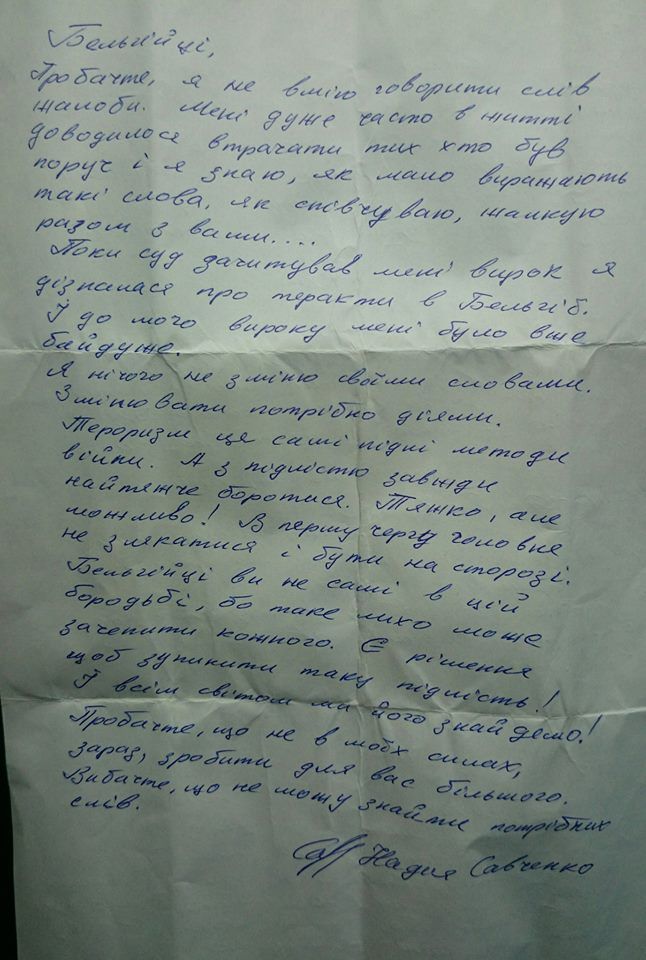 Бельгійці,
Пробачте, я не вмію говорити слів
жалоби. Мені дуже часто в житті
доводилося втрачати тих хто був
поруч і я знаю, як мало виражають
такі слова, як співчуваю, шалкую
разом з вами....
Поки суд зачитував мені вирок я
дізналася про теракти в Бельгії.
І до мого вироку мені було вже
байдуже.
Я нічого не зміню своїми словами.
Змінювати потрібно діями.
Тероризм це самі підлі методи
війни. А з підлістю завжди
найтяжче боротися. Тяжко, але
можливо! В першу чергу головне
не злякатися і бути на сторозі.
Бельгійці ви не самі в цій
бородьбі, бо таке лихо може
зачепити кожного. Є рішення
щоб зупинити таку підлість!
І всім світом ми його знайдемо!
Пробачте, що не в моїх силах,
зараз, зробити для вас більшого.
Вибачте, що не можу знайти потрібних
слів.
Надія Савченко